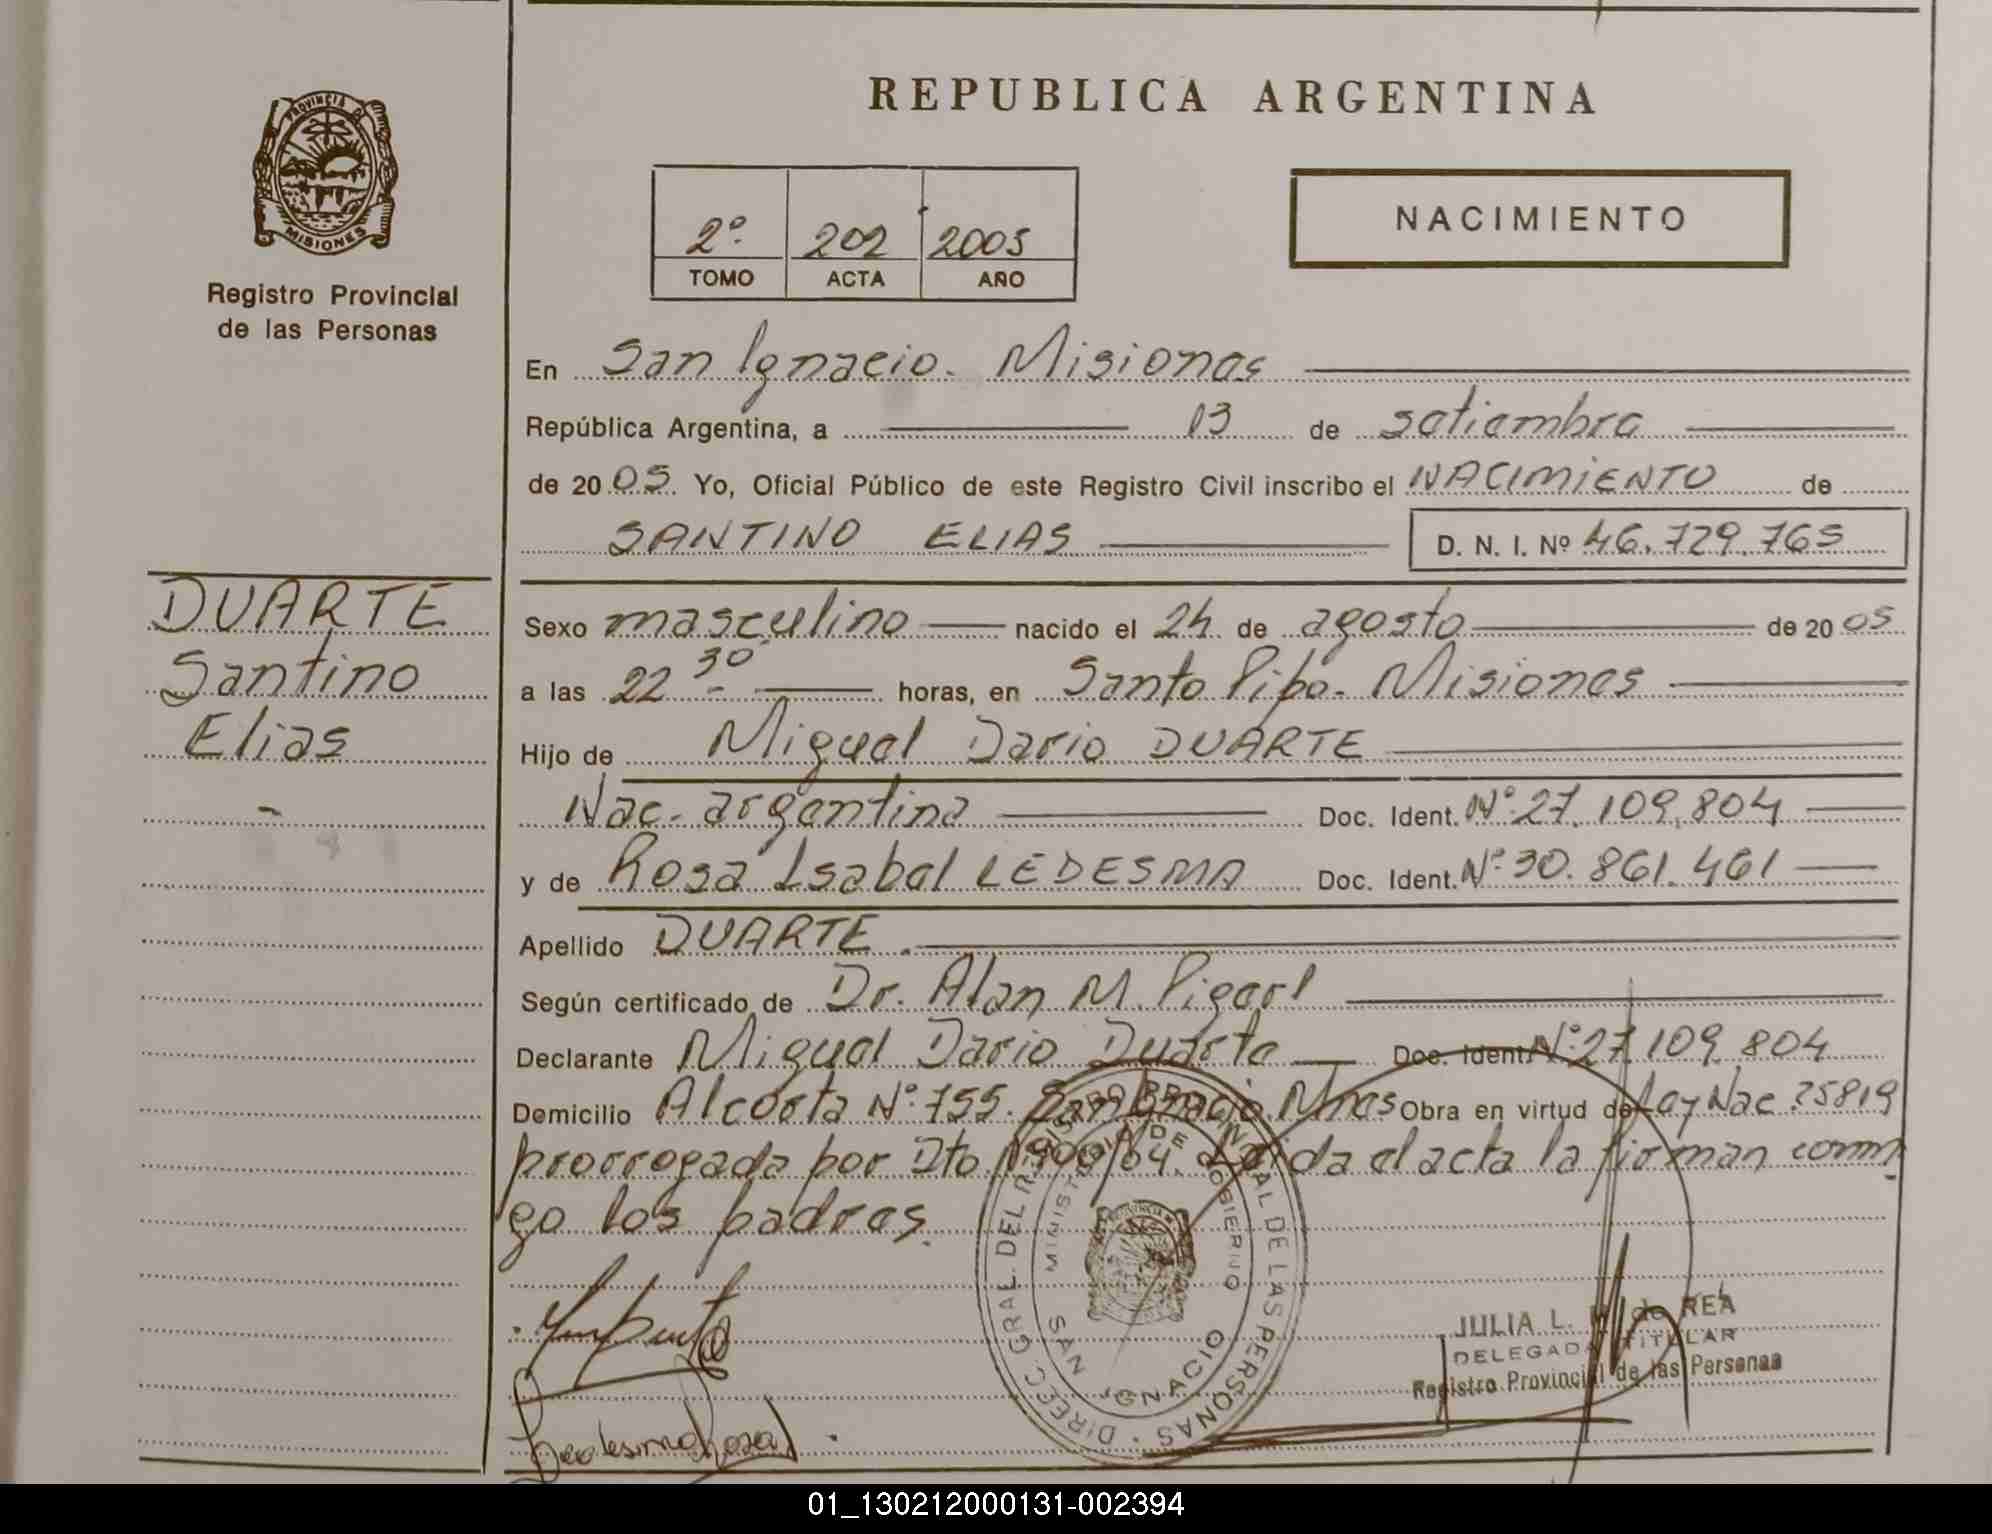 PROVINCIA DE
MISIONES
Registro Provincial
de las Personas
DUARTE
Santino
Elias
REPUBLICA ARGENTINA
2º 202 2005
TOMO ACTA AÑO
NACIMIENTO
En San Ignacio. Misiones
República Argentina, a 13 de setiembre
de 2005 Yo, Oficial Público de este Registro Civil inscribo el NACIMIENTO de
SANTINO ELIAS D. N. I. Nº 46.729.765
Sexo masculino nacido el 24 de agosto de 2005
a las 22 30 horas, en Santo Pipo. Misiones
Hijo de Miguel Dario DUARTE
Nac. argentina Doc. Ident. Nº 27.109.804
y de Rosa Isabel LEDESMA Doc. Ident. Nº 30.861.461
Apellido DUARTE.
Según certificado de Dr. Alan M.
Declarante Miguel Dario Duarte Doc. Ident. Nº 27.109.804
Domicilio Alcorta Nº 755. San Ignacio. Mnes Obra en virtud de Ley Nac. 25819
prorrogada por Dto 1900/04. Leida el acta la firman conmi
go los padres.
DIREC. GRAL. DEL PROVINCIAL DE LAS PERSONAS
MINISTERIO DE GOBIERNO
SAN IGNACIO
JULIA L. de REA
DELEGADA TITULAR
Registro Provincial de las Personas
Ledesma Rosa I
01_130212000131-002394